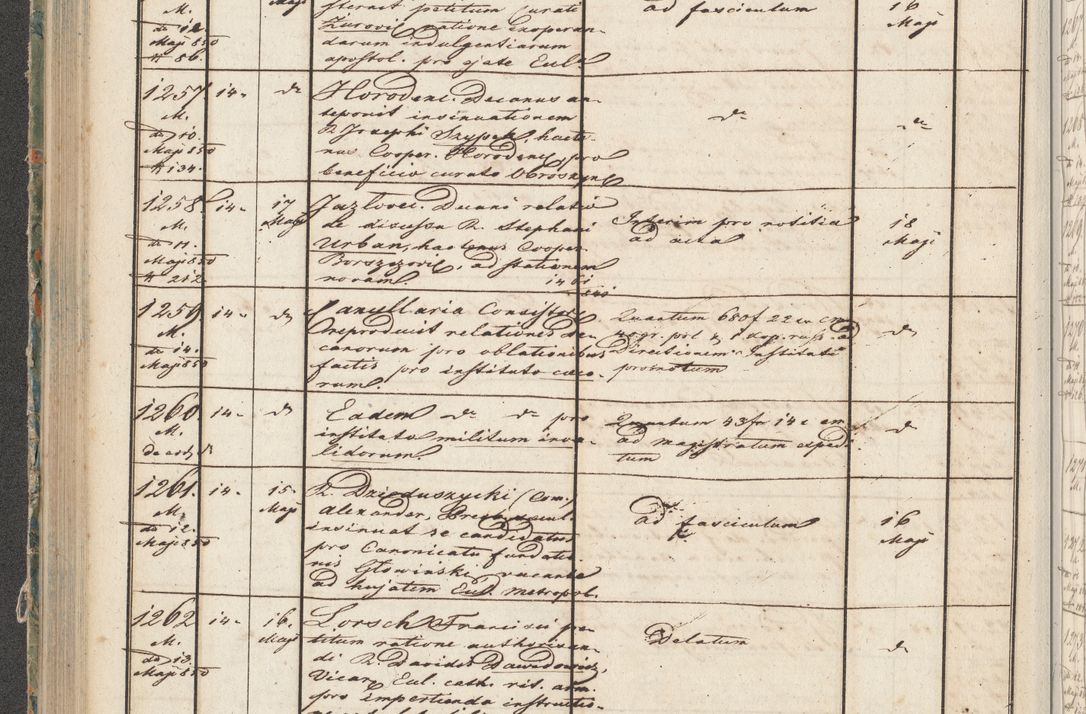 M.
de 12.
Maji 850
# 86.
Maji
sternit petitum curati
Zurovi ratione exoperan-
darum indulgentiarum
apostol. pro ejate Eul.
ad fasciculum
16
Maji
1257
M.
de 10.
Maji 850
# 134.
14.
Horodenc. Decanus an-
teponit insinuationem
R. Josephi Szypek, hacte-
nus Cooper. Horodeny, pro
beneficio curato Obroszyn
1258.
M.
de 11.
Maji 850
# 212.
14.
17
Maji
Jazlovec. Decani relatio
de discessu R. Stephani
Urban, hactenus Cooper.
Borszczovi, ad stationem
novam.
Interim pro notitia
ad acta
18
Maji
1259
M.
de 14.
Maji 850
14.
Cancellaria Consistoii
reproducit relationes de-
canorum pro oblationibus
factis pro instituto coeco-
rum.
Quantum 680 f 22 cu cm
ad
Directionem Instituti
promotum
1260
M.
de eod.
14.
Eadem pro
instituto militum inva-
lidorum
Quantum 43 fr 14 c cm
ad magistratum expedi-
tum
1261
M.
de 12.
Maji 850
14.
15.
Maji
R. Dzieduszycki (Com.)
Alexander,
insinuat se candidatum
pro Canonicatu fundatio-
nis Głowiński vacante
ad hujatem Eul. metropol.
ad fasciculum
16
Maji
1262
M.
de 13.
Maji 850
14.
16.
Maji
Lorsch Francisci pe-
titum ratione authorisan-
di R. Davidis Dawidowicz,
Vicar. Eul. cath. rit. arm.
pro impertienda instructio-
Delatum